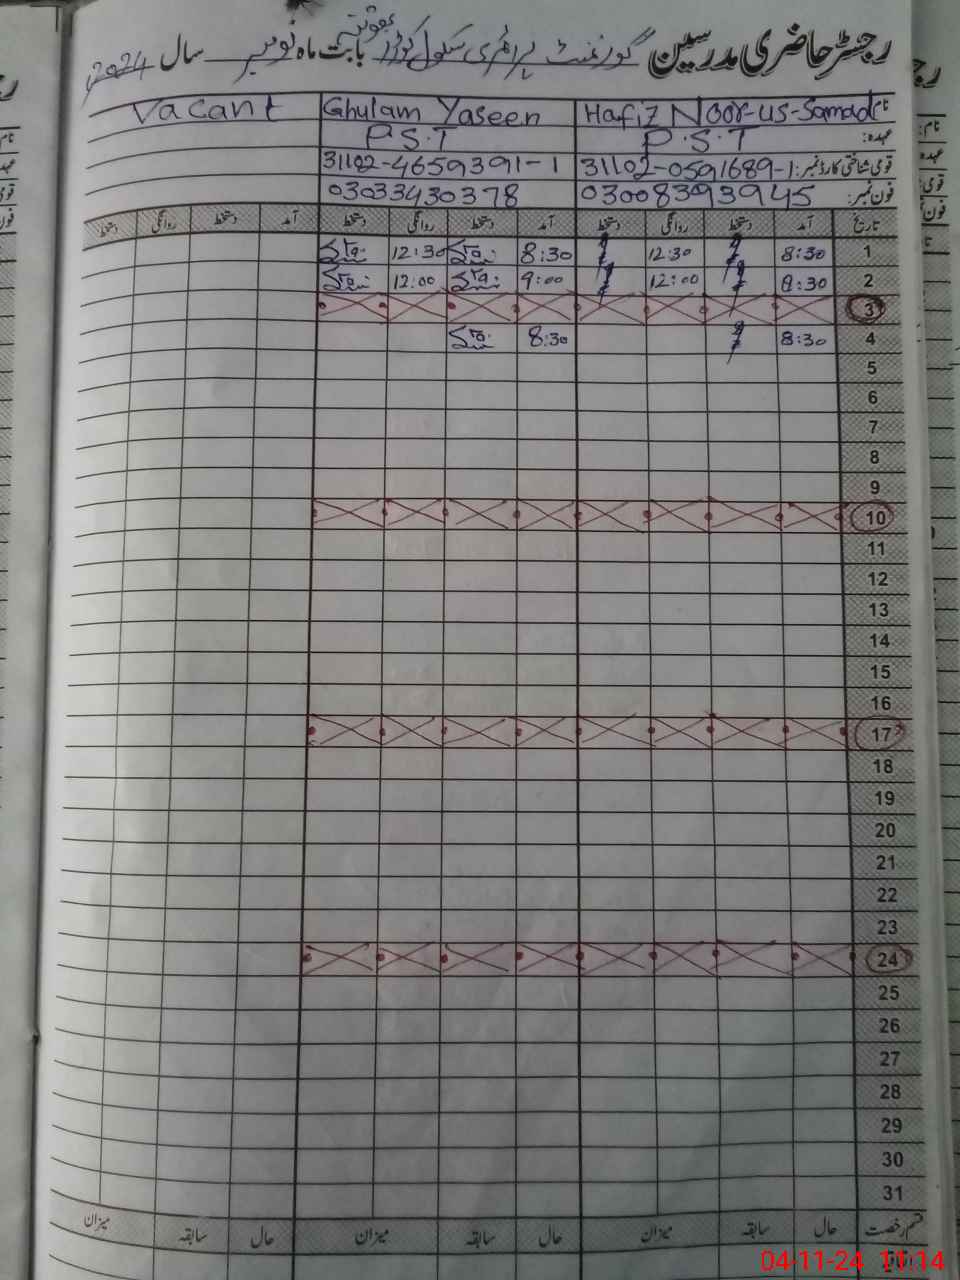 رجسٹر حاضری مدرسین گورنمنٹ پرائمری سکول بابت ماہ نومبر سال 2024
نام: Hafiz Noor-us-Samad Ghulam Yaseen Vacant
عہدہ: P.S.T P.S.T
قومی شناختی کارڈ نمبر: 31102-0591689-1 31102-4659391-1
فون نمبر: 03008393945 03033430378
تاریخ آمد دستخط روانگی دستخط آمد دستخط روانگی دستخط آمد دستخط روانگی دستخط
1 8:30 12:30 8:30 12:30
2 8:30 12:00 9:00 12:00
3
4 8:30 8:30
5
6
7
8
9
10
11
12
13
14
15
16
17
18
19
20
21
22
23
24
25
26
27
28
29
30
31
قسم رخصت حال سابقہ میزان حال سابقہ میزان حال سابقہ میزان
04-11-24 11:14